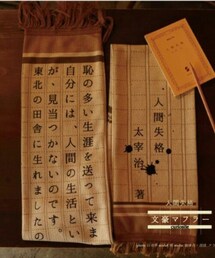 恥の多い生涯を送って来ま
自分には、人間の生活とい
が、見当つかないのです。
東北の田舎に生れましたの
人間失格
太宰治 著
人間失格
文豪マフラー